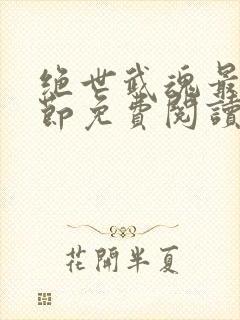 絕世武魂最
節免費閱讀
花開半夏